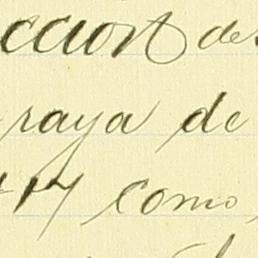 ccion de
raya de
como